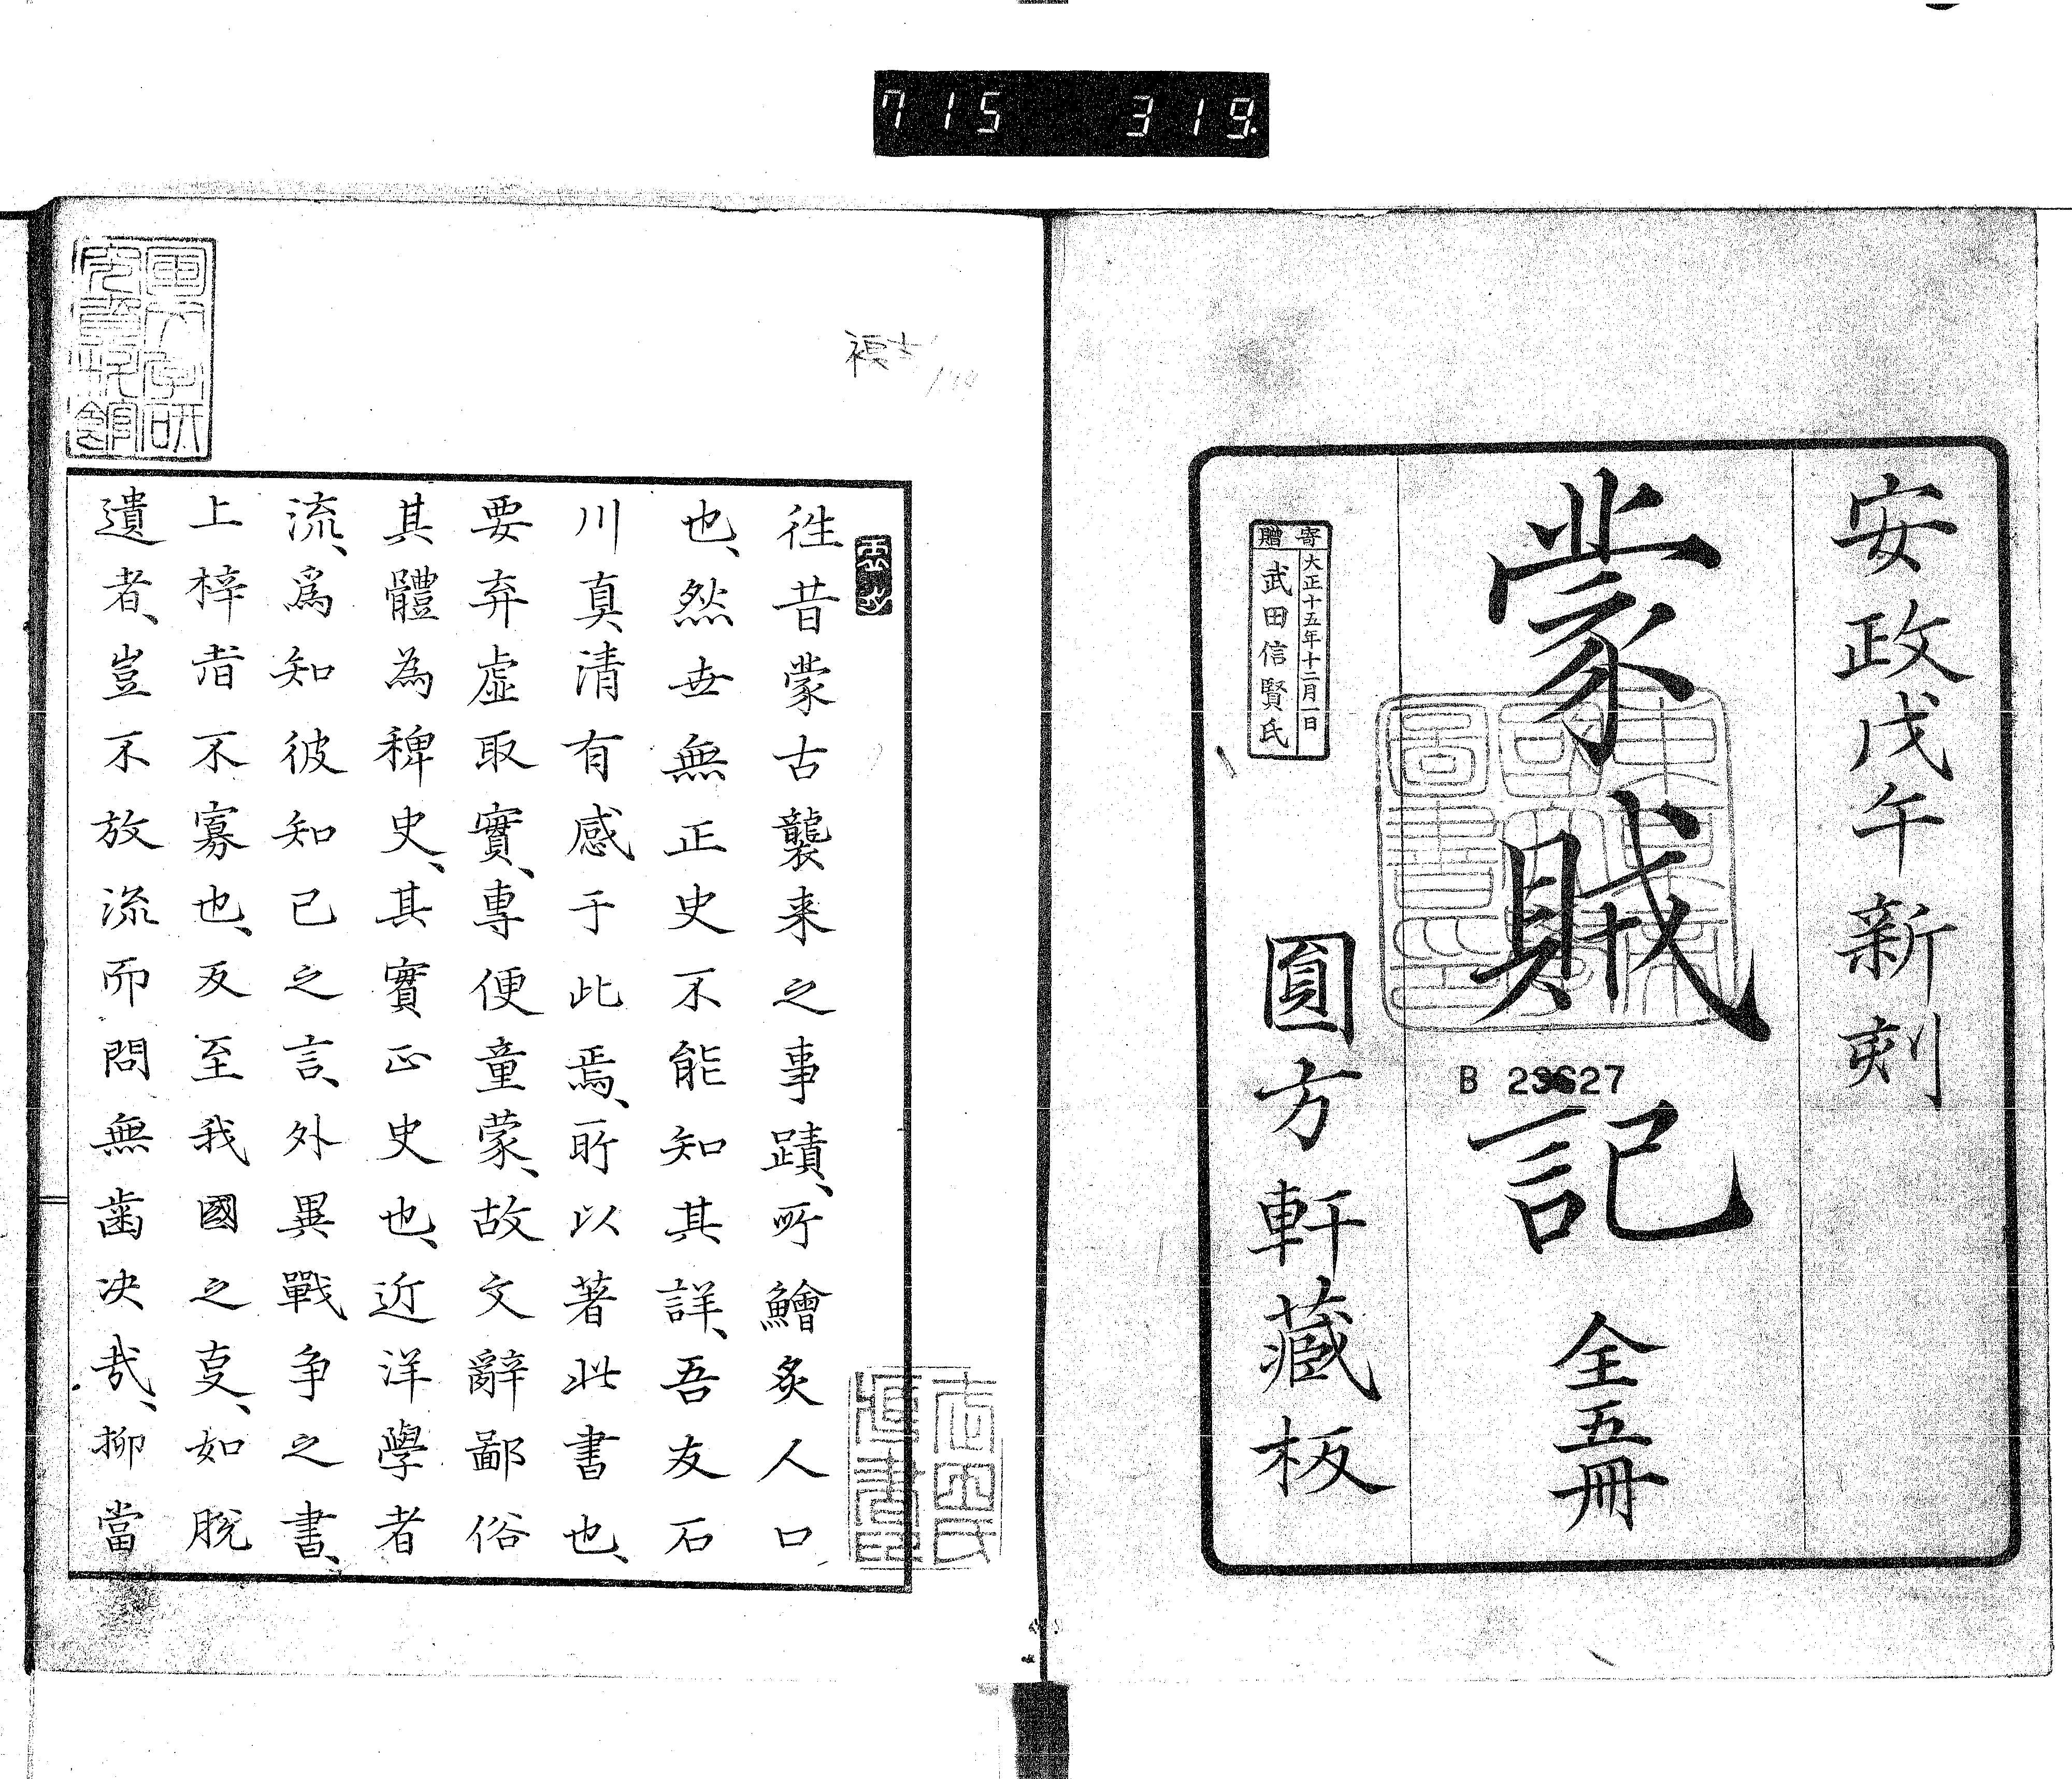 715 319.
安政戊午新刻
蒙賊記 全五冊
B 23627
圓方軒藏板
寄贈
大正十五年十二月一日
武田信賢氏
徃昔蒙古襲来之事蹟、所鱠炙人口
也、然丗無正史不能知其詳、吾友石
川真清有感于此焉、所以著此書也、
要弃虛取實、專便童蒙、故文辭鄙俗
其體為稗史、其實正史也、近洋學者
流、爲知彼知己之言、外異戰争之書、
上梓者不寡也、反至我國之㕝、如脫
遺者、豈不放流而問無齒决哉、抑當